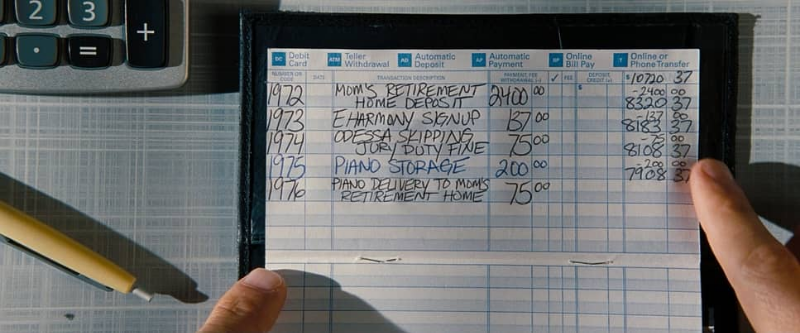 2 3
• = +
DC Debit Card ATM Teller Withdrawal AD Automatic Deposit AP Automatic Payment BP Online Bill Pay T Online or Phone Transfer
NUMBER OR CODE DATE TRANSACTION DESCRIPTION PAYMENT, FEE WITHDRAWAL (-) ✓ FEE DEPOSIT, CREDIT (+) $ 10720 37
1972 MOM'S RETIREMENT HOME DEPOSIT 2400 00 $ -2400 00
8320 37
1973 EHARMONY SIGNUP 137 00 -137 00
8183 37
1974 ODESSA SKIPPING JURY DUTY FINE 75 00 -75 00
8108 37
1975 PIANO STORAGE 200 00 -200 00
7908 37
1976 PIANO DELIVERY TO MOM'S RETIREMENT HOME 75 00